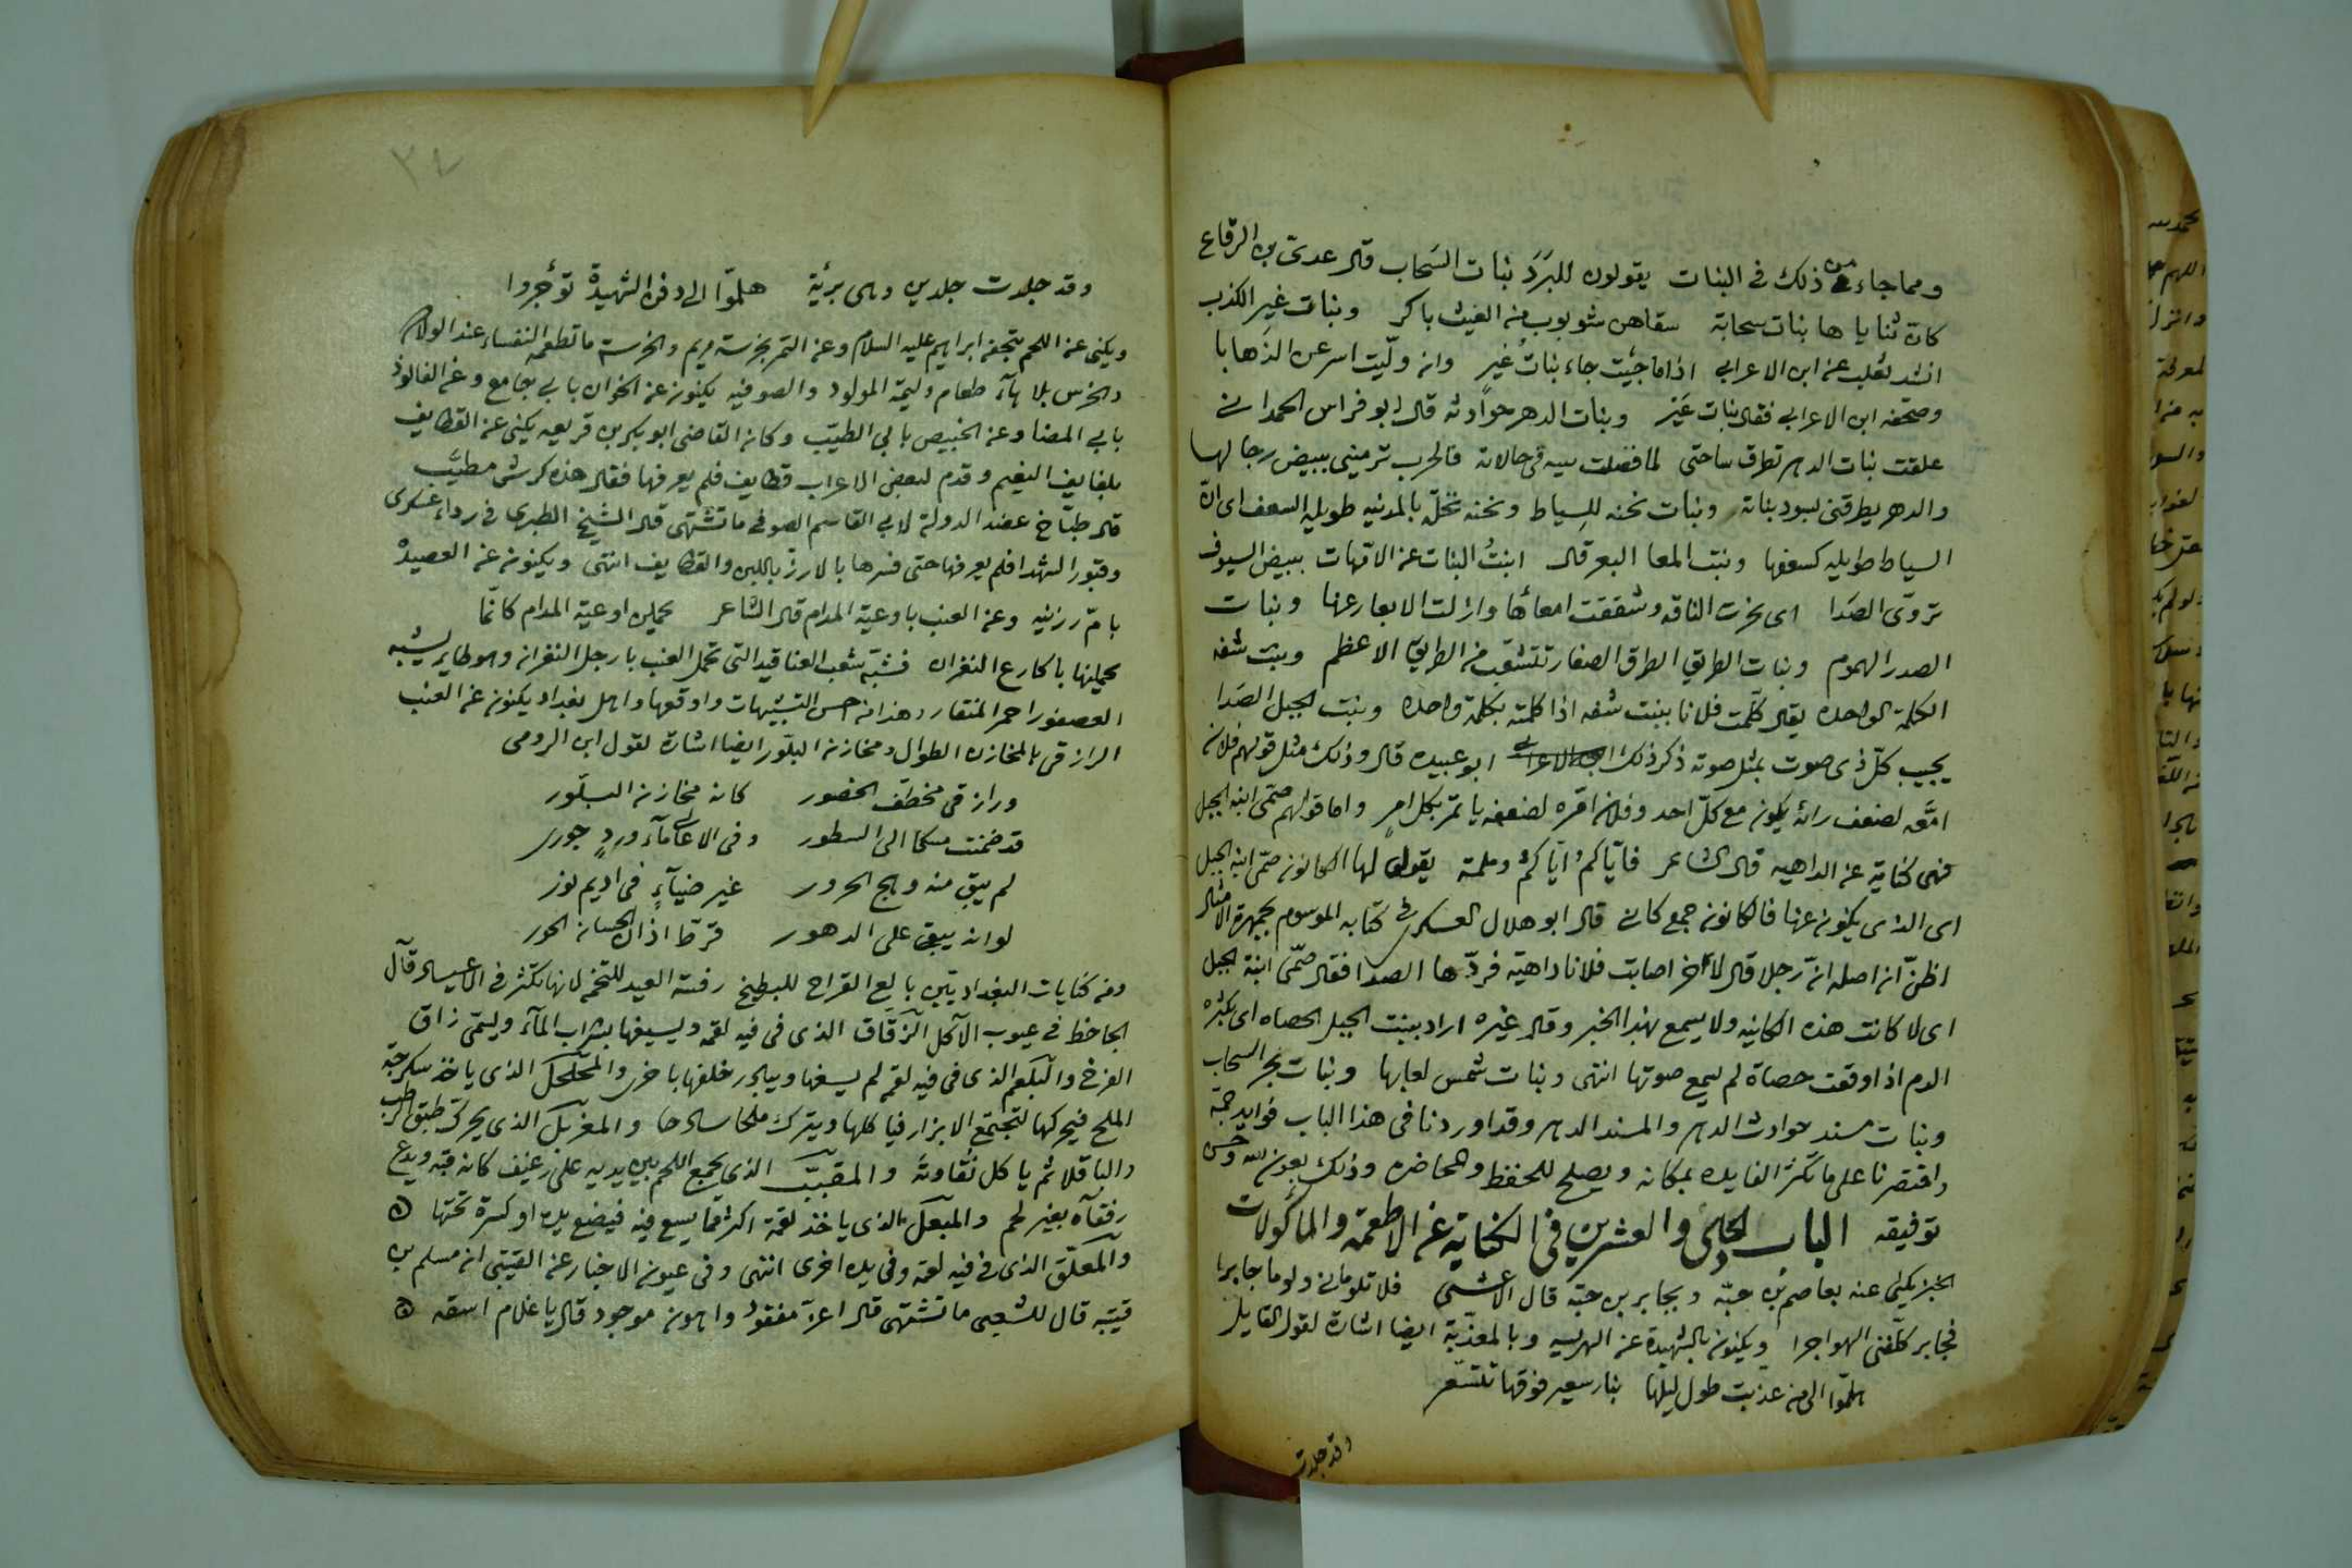 ومما جاء من ذلك فى البنات يقولون للبَرَد بنات السَحاب قال عدىّ بن الرقاع
كان ثنايا ها بنات سحابة سقاهن شوبوب من الغيث باكر وبنات غير الكذب
انشد ثعلب عن ابن الاعرابى اذا ما جيت جاء بنات غيرٍ وان ولّيت اسرعن الذَهابا
وصحّفه ابن الاعرابى فقال بنات عَنْز وبنات الدهر حوادثه قال ابو فراس الحمدانى
علقت بنات الدهر تطرق ساحتى لما فضلت بنيه فى حالاته فالحرب ترمينى ببيض رجالها
والدهر يطرقنى بسود بناته وبنات نخنه للسياط ونخنه نخلة بالمدينه طويلة السعف اى انّ
السياط طويله كسعفها وبنت المعا البعر قال ابنتُ البنات عن الامهات ببيض السيوف
تروّى الصَدا اى نحرت الناقه وشققت امعاٴها وازلت الابعار عنها وبنات
الصدر الهموم وبنات الطريق الطرق الصغار تتشعّب من الطريق الاعظم وبنت شفه
الكلمة الواحده يقال كلّمت فلانا ببنت شفه اذا كلمته بكلمة واحده وبنت الجبل الصَدا
يجيب كلّ ذى صوت بمثل صوته ذكر ذلك ابو عبيده قال وذلك مثل قولهم فلان
امَّعه لضعف رائه يكون مع كلّ احد وفلان امّره لضعفه يأتمر بكل امرٍ واما قولهم صمّى ابنة الجبل
فهى كناية عن الداهيه قال الشاعر فايّاكمُ ايّاكمُ وملمة يقول لها الكانون صمّى ابنة الجبل
اى الذى يكنون عنها فالكانون جمع كانى قال ابو هلال العسكرى فى كتابه الموسوم بجمهرة الامثال
اظنّ ان اصله انّ رجلا قال لآخر اصابت فلانا داهية فردّها الصدا فقال صمّى ابنة الجبل
اى لا كانت هذه الكاينه ولا يسمع بهذا الخبر وقال غيره اراد ببنت الجبل الحصاه اى بكثره
الدم اذا وقعت حصاة لم يسمع صوتها انتهى وبنات شمس لعابها وبنات بحر السحاب
وبنات مسند حوادث الدهر والمسند الدهر وقد اوردنا فى هذا الباب فوايد جمّة
واقتصرنا على ما تكثر الفايده بمكانه ويصلح للحفظ والمحاضره وذلك بعون الله وحسن
توفيقه الباب الحادى والعشرين فى الكناية عن الاطعمة والماٴكولات
الخبز يكنى عنه بعاصم بن حبّه وبجابر بن حبّه قال الاعشى فلا تلومانى ولوما جابرا
فجابر كلّفنى الهواجرا ويكنون بالشهيدة عن الهريسه وبالمعذّبة ايضا اشارة لقول القايل
هلمّوا الى من عذبت طول ليلها بنار سعير فوقها تتسعّر
وقد جلدت
٣٧
وقد جلدت جلدين وهى بريٴة هلمّوا الى دفن الشهيدة توٴجروا
ويكنى عن اللحم بتحفة ابراهيم عليه السلام وعن التمر بخرسة مريم والخرسة ما تطعمه النفساء عند الولادة
والخرس بلا هآء طعام وليمة المولود والصوفيه يكنون عن الخوان بابى جامع وعن الفالوذ
بابى المضا وعن الخبيص بابى الطيّب وكان القاضى ابو بكر بن قريعه يكنى عن القطايف
بلفايف النعيم وقدم لبعض الاعراب قطايف فلم يعرفها فقال هذه كرش مطيَّب
قال طبّاخ عضد الدولة لابى القاسم الصوفى ما تشتهى قال الشيخ الطبرى فى رداء عسكرى
وقبور الشهدا فلم يعرفها حتى فسرها بالارز باللبن والقطايف انتهى ويكنون عن العصيدة
بامّ رزينه وعن العنب باوعية المدام قال الشاعر يحملن اوعية المدام كانّما
يحملنها باكارع النغران فشبّه شعب العناقيد التى تحمل العنب بارجل النغران وهو طاير يشبه
العصفور احمر المنقار وهذا من احسن التشبيهات واوقعها واهل بغداد يكنون عن العنب
الرازقى بالمخازن الطوال ومخازن البلّور ايضا اشارة لقول ابن الرومى
ورازقى مخطف الخصور كان مخازن البلّور
قد ضمنت مسكا الى السطور وفى الاعالى مآء وردٍ جورى
لم يبق منه وهج الحرور غير ضيآءٍ فى اديم نور
لو انه يبقى على الدهور قرّط اذان الحسان الحور
ومن كنايات البغداديّين بايع القراح للبطيخ رفسة العيد للتخمه لانها تكثر فى الاعياد قال
الجاحظ فى عيوب الآكل الزقّاق الذى فى فيه لقمه ويسيغها بشراب المآء ويسمّى زاق
الفرخ والبلعم الذى فى فيه لقمه لم يسغها ويبادر خلفها باخرى والمحلحل الذى ياخذ سكرجة
الملح فيحركها لتجتمع الابزار فياكلها ويترك ملحا ساذجا والمغربل الذى يحرك طبق الرطب
والباقلا ثم ياكل نقاوته والمقبّب الذى يجمع اللحم بين يديه على رغيف كانه قبه ويدع
رفقآه بغير لحم والمبعكل الذى ياخذ لقمة اكثر مما يسع فيه فيضع يده او كسرة تحتها ۞
والمعلّق الذى فى فيه لقمه وفى يده اخرى انتهى وفى عيون الاخبار عن القتيبى ان مسلم بن
قتيبه قال للشعبى ما تشتهى قال اعزّ مفقود واهون موجود قال يا غلام اسقه ۞